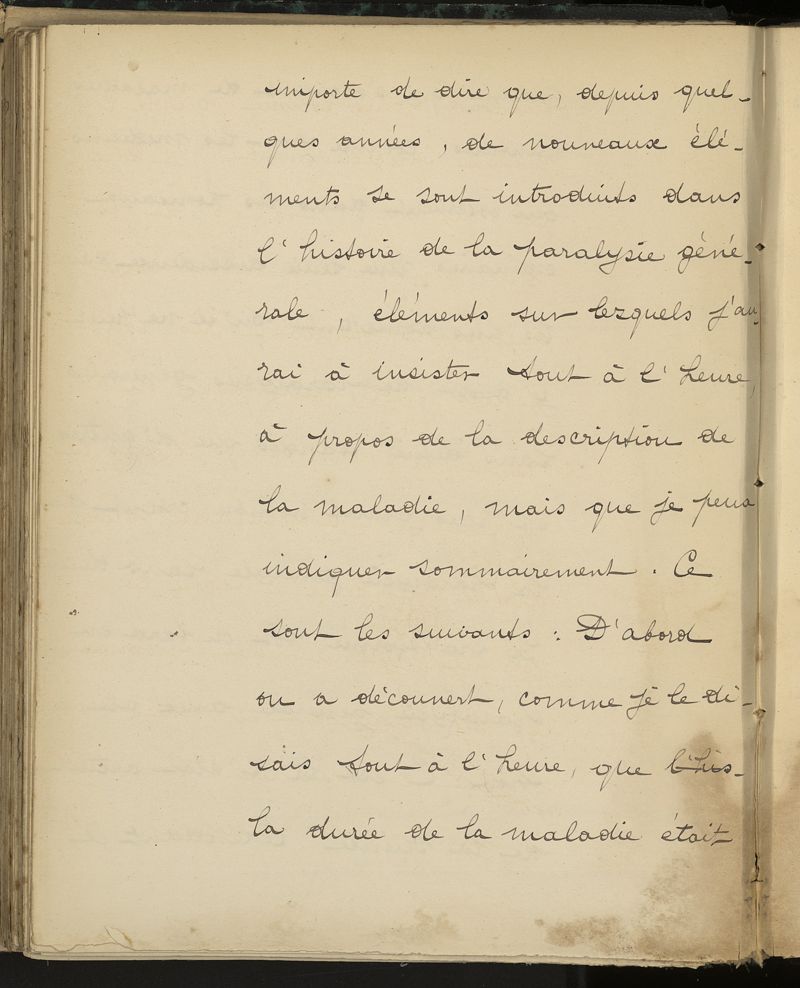 importe de dire que, depuis quel-
ques années, de nouveaux élé-
ments se sont introduits dans
l'histoire de la paralysie géné-
rale, éléments sur lezquels j'au-
rai à insister tout à l'heure,
à propos de la description de
la maladie, mais que je peux
indiquer sommairement. Ce
sont les suivants : D'abord
on a découvert, comme je le di-
sais tout à l'heure, que l'his-
la durée de la maladie était